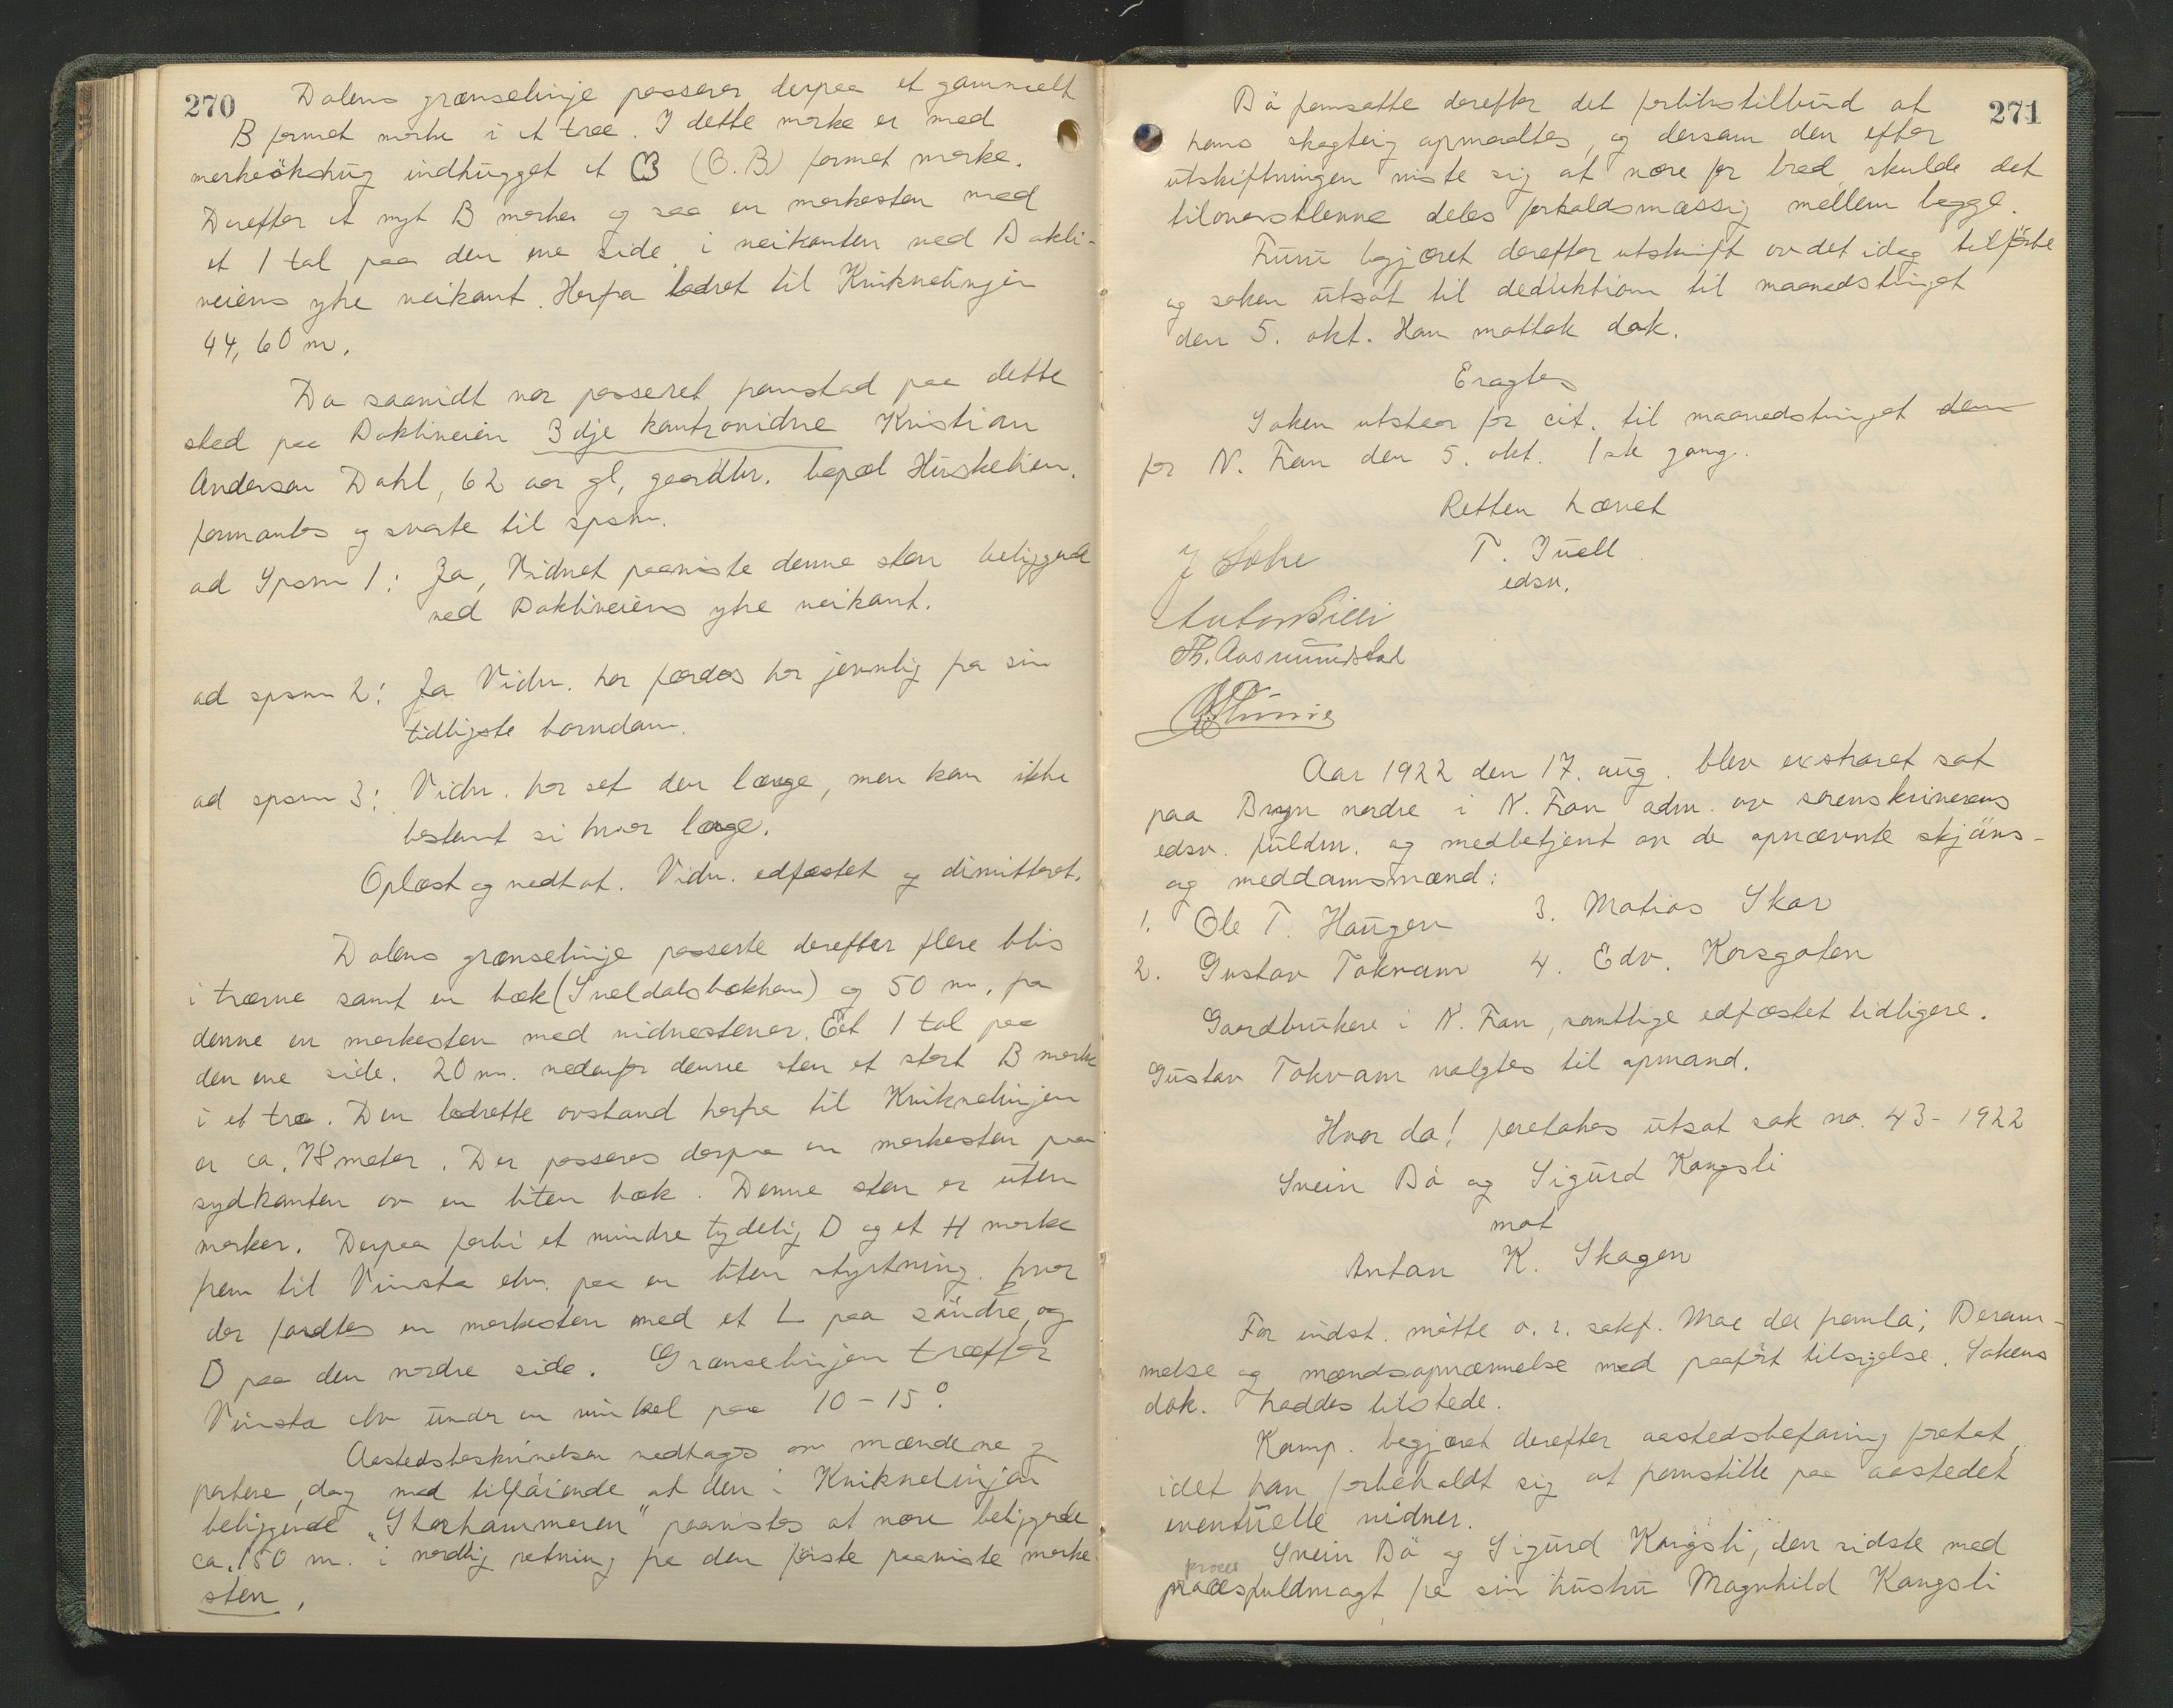 270
Dalens grænselinje passerer derpaa et gammelt
B formet merke i et træ. I dette merke er med
merkeökshug indhugget et B (O.B) formet merke.
Derefter et nyt B merke og saa en merkesten med
et 1 tal paa den ene side, i veikanten ved Bakli-
veiens ytre veikant. Herfra lodret til Kviknelinjen
44,60 m.
Da saavidt var passeret fremstod paa dette
sted paa Bakliveien 3dje kontravidne Kristian
Andersen Dahl, 62 aar gl, gaardbr. bopæl Huskelien.
formantes og svarte til spsm.
ad Spsm 1: Ja, Vidnet paaviste denne sten beliggende
ved Bakliveiens ytre veikant.
ad spsm 2: Ja Vidn. har færdes her jevnlig fra sin
tidligste barndom.
ad spsm 3: Vidn. har set den længe, men kan ikke
bestemt si hvor længe.
Oplæst og vedtat. Vidn. edfæstet og dimitteret.
Dalens grænselinje passerte derefter flere blis
i trærne samt en bæk (Sveldalsbækken) og 50 m. fra
denne en merkesten med vidnestener. Et 1 tal paa
den ene side. 20 m. nedenfor denne sten et stort B merke
i et træ. Den lodrette avstand herfra til Kviknelinjen
er ca. 78 meter. Der passeres derpaa en merkesten paa
sydkanten av en liten bæk. Denne sten er uten
merker. Derpaa forbi et mindre tydelig D og et H merke
frem til Vinsta elv. paa en liten styrtning. hvor
der fandtes en merkesten med et L paa söndre, og
D paa den nordre side. Grænselinjen træffer
Vinsta elv under en vinkel paa 10 - 15°.
Aastedsbeskrivelsen vedtages av mændene og
partene, dog med tilföiende at den i Kviknelinjen
beliggende "Storhammeren" paavistes at være beliggende
ca. 150 m. i nordlig retning fra den förste paaviste merke-
sten.
271
Bö fremsatte derefter det forlikstilbud at
hans skogteig opmaaltes, og dersom den efter
utskiftningen viste sig at være for bred, skulde det
tiloversblevne deles forholdsmæssig mellem begge.
Furu begjæret derefter utskrift av det idag tilförte
og saken utsat til deduktion til maanedstinget
den 5. okt. Han mottok dok.
Eragtes
Saken utstaar for cit. til maanedstinget den
for N. Fron den 5. okt. 1ste gang.
Retten hævet
T. Juell
edsv.
Anton Billi
Th. Aasmundstad
Aar 1922 den 17. aug. blev ekstraret sat
paa Bryn nordre i N. Fron adm. av sorenskriverens
edsv. fuldm. og medbetjent av de opnævnte skjöns-
og meddomsmænd:
1. Ole T. Haugen 3. Matias Skar
2. Gustav Tokvam 4. Edv. Korsgaten
Gaardbrukere i N. Fron, samtlige edfæstet tidligere.
Gustav Tokvam valgtes til opmand.
Hvor da! foretokes utsat sak no. 43 - 1922
Svein Bö og Sigurd Kangsli
mot
Anton K. Skagen
For indst. mötte o. r. sakf. Moe der fremla; Beram-
melse og mændsopnævnelse med paafört tilsigelse. Sakens
dok. haddes tilstede.
Komp. begjæret derefter aastedsbefaring foretat,
idet han forbeholdt sig at fremstille paa aastedet
eventuelle vidner.
Svein Bö og Sigurd Kangsli, den sidste med
proces
procesfuldmagt fra sin hustru Magnhild Kangsli